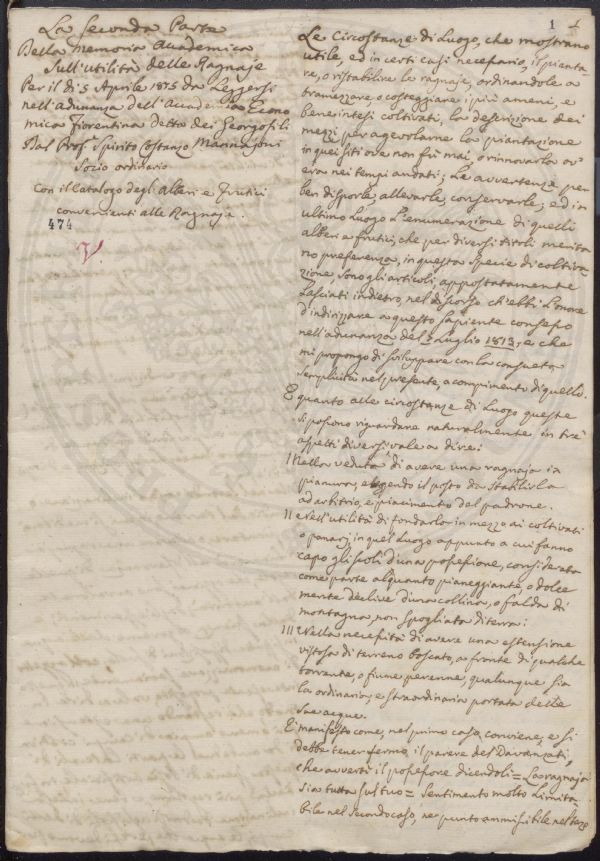 La Seconda Parte
Della Memoria Academica
Sull'utilità delle Ragnaje
Per il dì 5 Aprile 1815 da Leggersi
nell'adunanza dell'Accademia Econo
mica Fiorentina detta dei Georgofili
Dal Prof. Spirito Costanzo Mannajoni
Socio ordinario
Con il Catalogo degli alberi e Frutici
convenienti alle Ragnaje.
474
V.
1 1
Le Circostanze di Luogo, che mostrano
utile, ed in certi casi necessario, il pianta-
re, o ristabilire le ragnaje, ordinandole a
tramezzare, o costeggiare i più ameni, e
beneintesi coltivati, la descrizione dei
mezzi per agevolarne la piantazione
in quei siti ove non fù mai, o rinnovarla ov'
era nei tempi andati; Le avvertenze per
ben disporle, allevarle, conservarle; ed in
ultimo Luogo L'enumerazione di quelli
alberi e frutici, che per diversi titoli merita
no preferenza, in questa specie di coltiva
zione, sono gli articoli, appostatamente
Lasciati indietro, nel discorso ch'ebbi L'onore
d'indirizzare a questo sapiente consesso
nell'adunanza del Luglio 1813, e che
mi propongo di sviluppare con la consueta
semplicità nel presente, a compimento di quello.
E quanto alle circostanze di Luogo queste
si possono riguardare naturalmente in trè
aspetti diversi, vale a dire:
I Nella veduta di avere una ragnaja in
pianura, eleggendo il posto da stabilirla
ad arbitrio, e piacimento del padrone.
II Nell'utilità di fondarla in mezzo ai coltivati
o panarj in quel Luogo appunto a cui fanno
capo gli scoli d'una possessione, considerata
come parte alquanto pianeggiante, o dolce
mente declive d'una collina, o falda di
montagna, non spogliata di terra:
III Nella necessità di avere una estensione
vistosa di terreno boscato, a fronte di qualche
torrente, o fiume perenne, qualunque sia
la ordinaria, e straordinaria portata delle
sue acque.
E' manifesto come, nel primo caso, conviene, e si
debbe tener fermo, il parere del Davanzati,
che avvertì il possessore dicendoli = La ragnaja
sia tutta sul tuo = Sentimento molto Limita-
bile nel secondo caso, nè punto ammissibile nel terzo